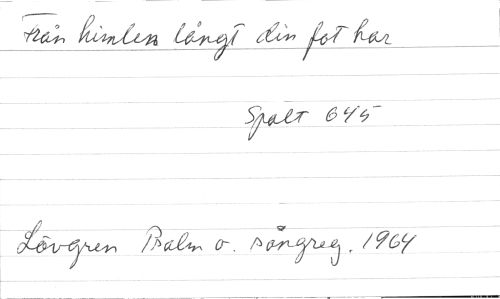 Från himlen långt din fot har
Spalt 645
Lövgren Psalm o. sångreg. 1964